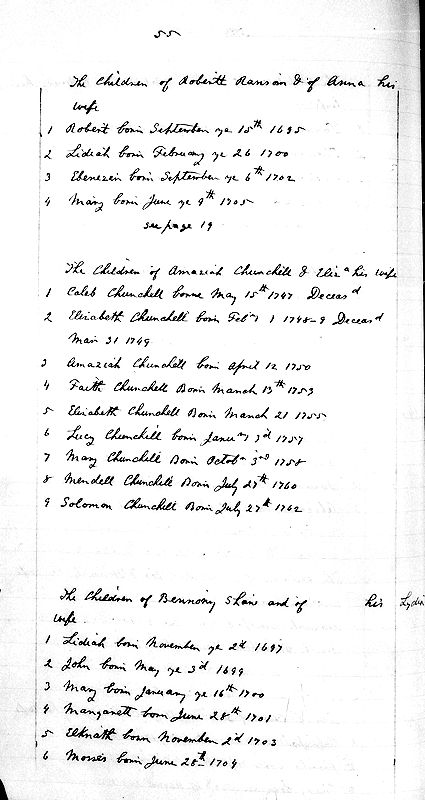 55
The Children of Robertt Ransom & of Anna his
wife
1 Robert born September ye 15th 1695
2 Lidiah born February ye 26 1700
3 Ebenezer born September ye 6th 1702
4 Mary born June ye 9th 1705
see page 19
The Children of Amaziah Churchell & Eliza his wife
1 Caleb Churchell borne May 15th 1747 Deceasd
2 Elizabeth Churchell born Febry 1 1748-9 Deceasd
Mar 31 1749
3 Amaziah Churchell born April 12 1750
4 Faith Churchell Born March 13th 1753
5 Elizabeth Churchell Born March 21 1755
6 Lucy Churchell born Janury 3rd 1757
7 Mary Churchell Born Octobr 3rd 1758
8 Mendell Churchell Born July 27th 1760
9 Solomon Churchell Born July 27th 1762
The Children of Bennony Shaw and of his Lydia
wife
1 Lidiah born November ye 2d 1697
2 John born May ye 3d 1699
3 Mary born January ye 16th 1700
4 Margarett born June 28th 1701
5 Elknath born November 2d 1703
6 Mosses born June 28th 1704